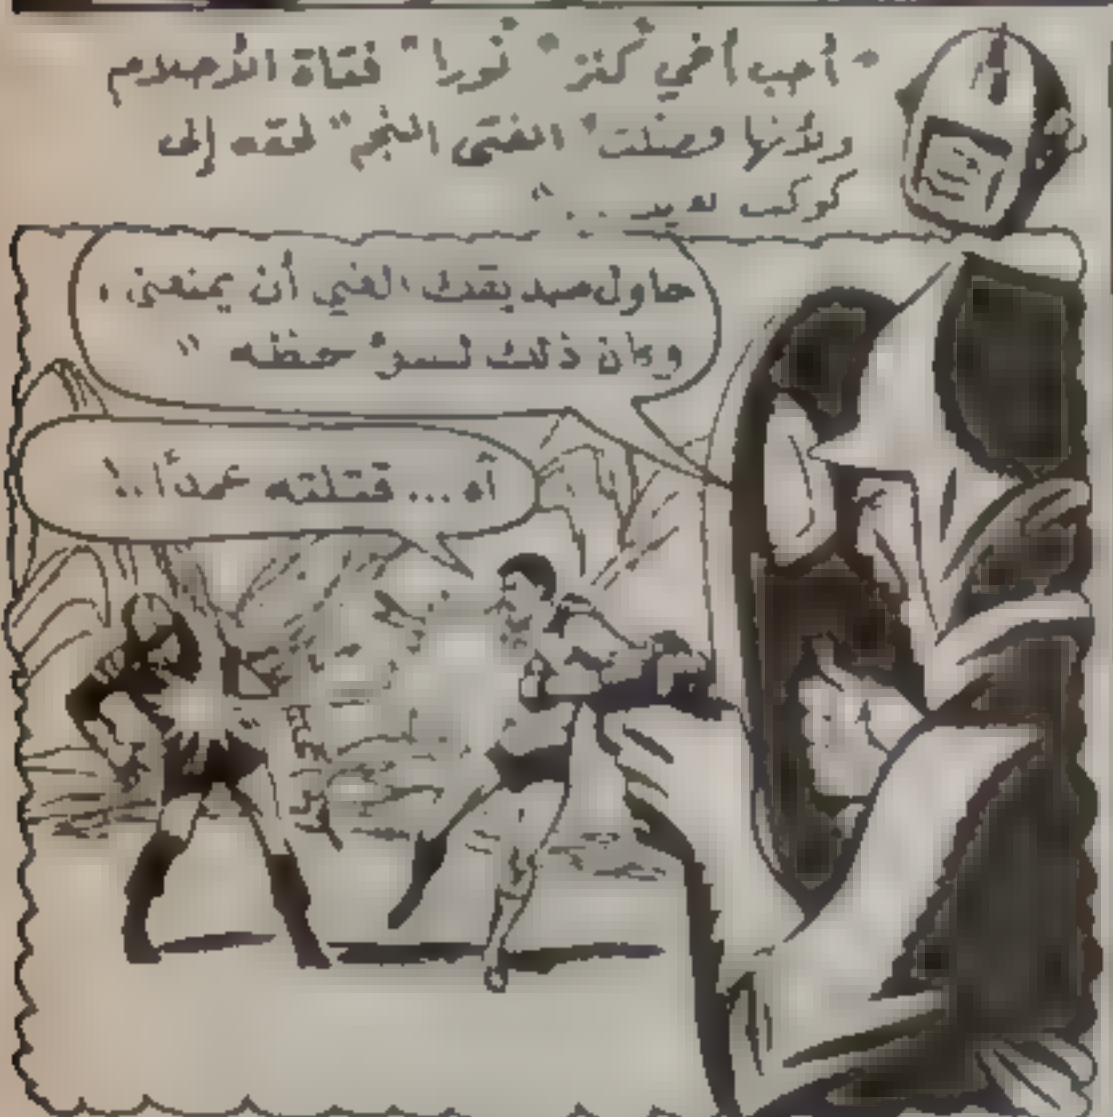 " أحب أخي كنز " نورا " فتاة الأحلام
ولأنها فضلت " الفتى النجم " لحقه إلى
كوكب بعيد .. "
حاول صديقك الغبي أن يمنعني ،
وكان ذلك لسوء حظه "
آه ... قتلته عمداً ..!